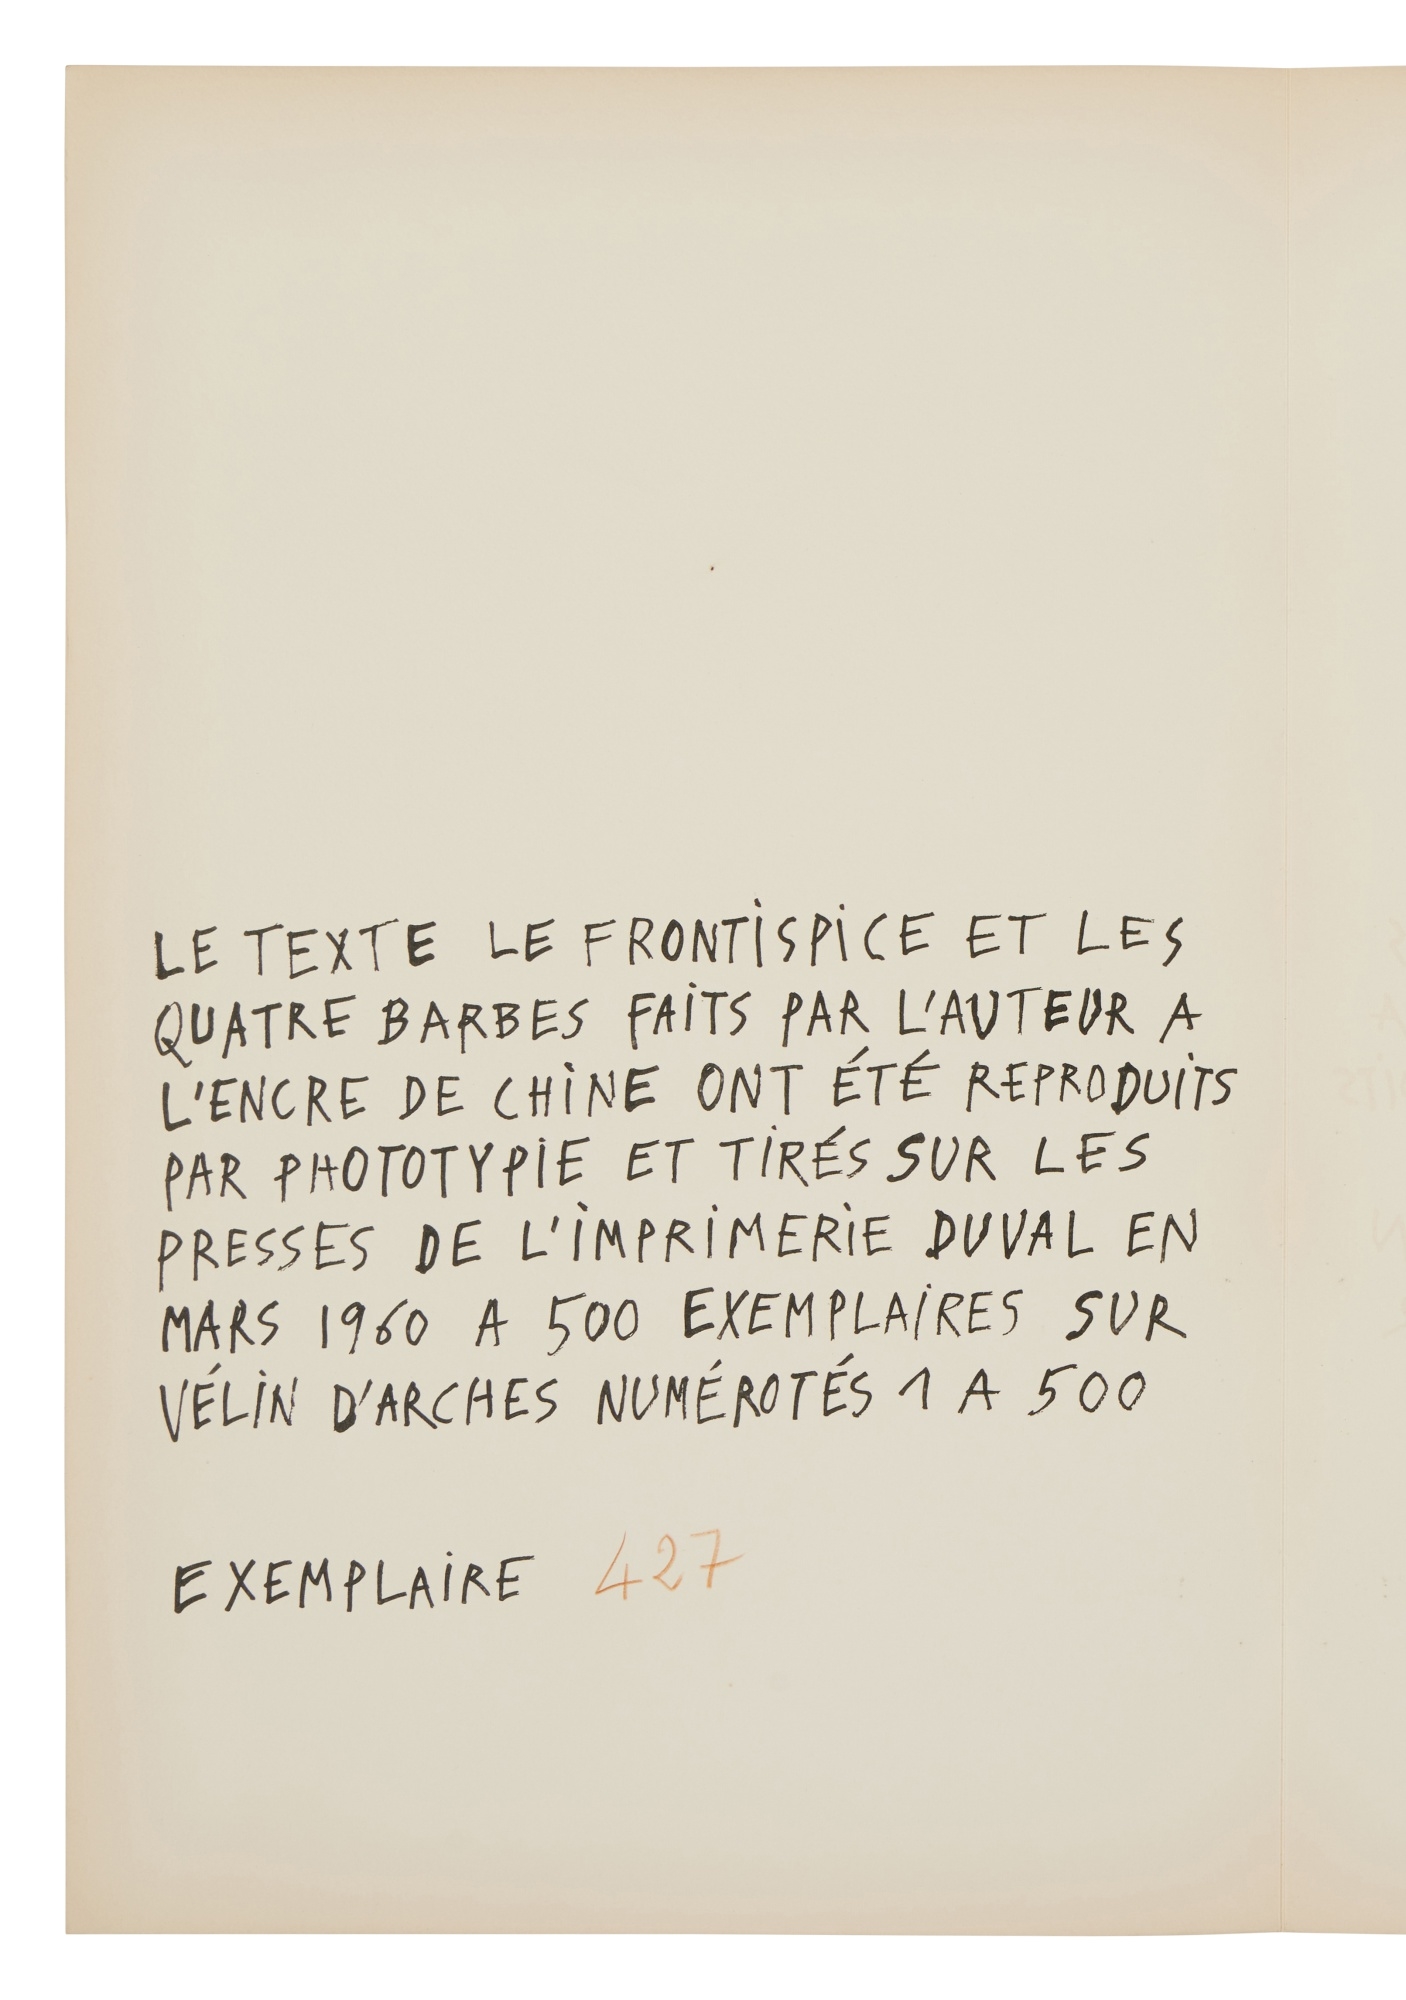 LE TEXTE LE FRONTISPICE ET LES
QUATRE BARBES FAITS PAR L'AUTEUR A
L'ENCRE DE CHINE ONT ÉTÉ REPRODUITS
PAR PHOTOTYPIE ET TIRÉS SUR LES
PRESSES DE L'IMPRIMERIE DUVAL EN
MARS 1960 A 500 EXEMPLAIRES SUR
VÉLIN D'ARCHES NUMÉROTÉS 1 A 500
EXEMPLAIRE 427